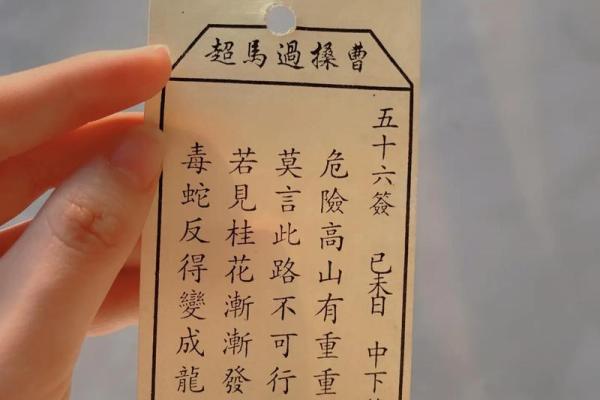 曹操過馬超
五十六簽 己未日 中下
危險高山有重重
莫言此路不可行
若見桂花漸漸發
毒蛇反得變成龍